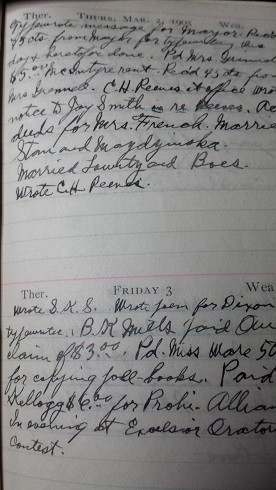 Ther. THURS. MAR. 2, 1905 Wea.
message for Mayor. Recd
45 cts from Mayor for typewriting this
day & heretofore done. Pd Mrs
$5.00 McIntyre rent. Recd 45 cts from
Mrs C.H. Reeves it office wrote
notice to Jay Smith in re Reeves. Ac
deeds for Mrs. French. Married
Stan and
Married and Boes.
Wrote C.H. Reeves.
Ther. FRIDAY 3 Wea
Wrote S. K. S. Wrote poem for Dixon
B. K. Mills paid Our
claim of $3.00. Pd. Miss Ware 50
for copying poll-books. Paid
Kellogg $6.00 for Prohi. Allian
In evening at Excelsior Orator
Contest.